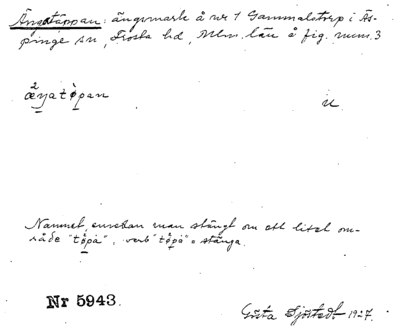 Ängatäppan: ängsmark å nr 1 Gammalstorp i Äs-
pinge sn, Frosta hd, Mlm. län å fig. num. 3
æŋatǫ̀pan u
Namnet, emedan man stängt om ett litet om-
råde "tǫ̀pa", verb "tǫ̀pa" = stänga.
Nr 5943.
Gösta Sjöstedt 1927.